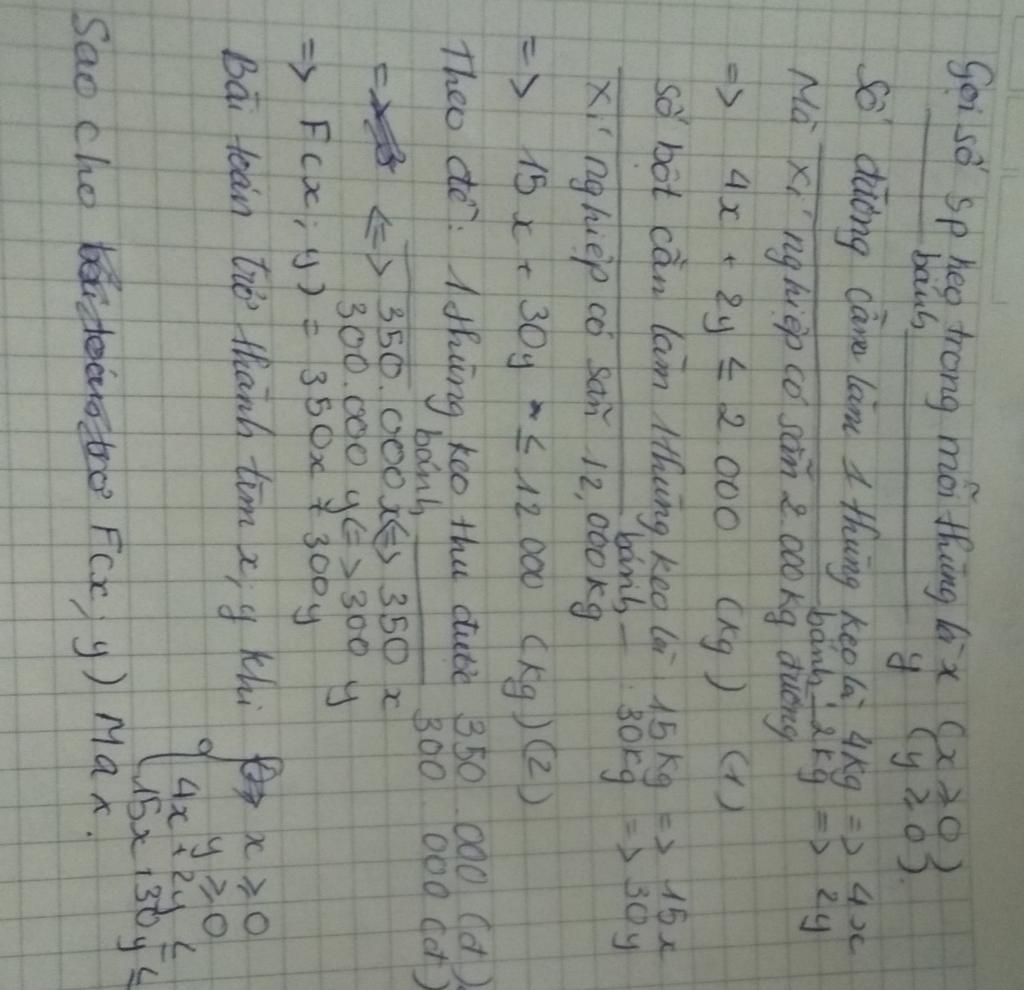 Gọi số sp kẹo trong mỗi thùng là x (x ≥ 0)
bánh y (y ≥ 0).
Số đường cần làm 1 thùng kẹo là 4kg => 4x
bánh - 2kg => 2y
Mà xí nghiệp có sẵn 2 000kg đường
=> 4x + 2y ≤ 2 000 (kg) (1)
Số bột cần làm 1 thùng kẹo là 15kg => 15x
bánh - 30kg => 30y
Xí nghiệp có sẵn 12,000kg
=> 15x + 30y ≤ 12 000 (kg) (2)
Theo đề: 1 thùng kẹo thu được 350 .000 (đ).
bánh 300 .000 (đ)
<=> 350.000x <=> 350 x
300.000 y <=> 300 y
=> F(x; y) = 350x + 300y
Bài toán trở thành tìm x; y khi x ≥ 0
y ≥ 0
4x + 2y ≤
15x + 30y ≤
Sao cho bài toán trở F(x; y) Max.